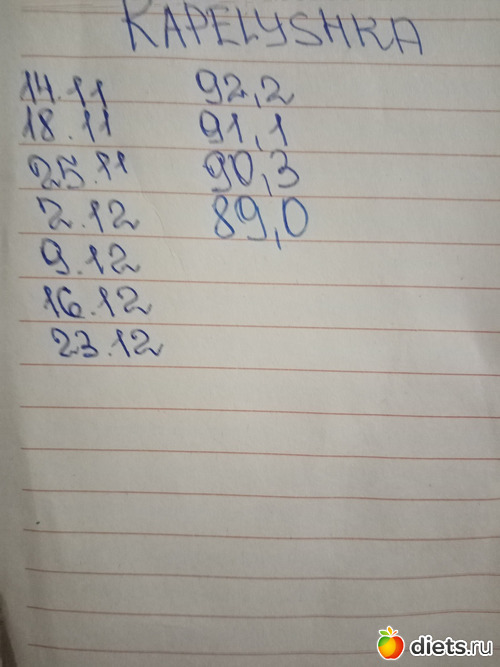 KAPELYSHKA
14.11 92,2
18.11 91,1
25.11 90,3
2.12 89,0
9.12
16.12
23.12
diets.ru